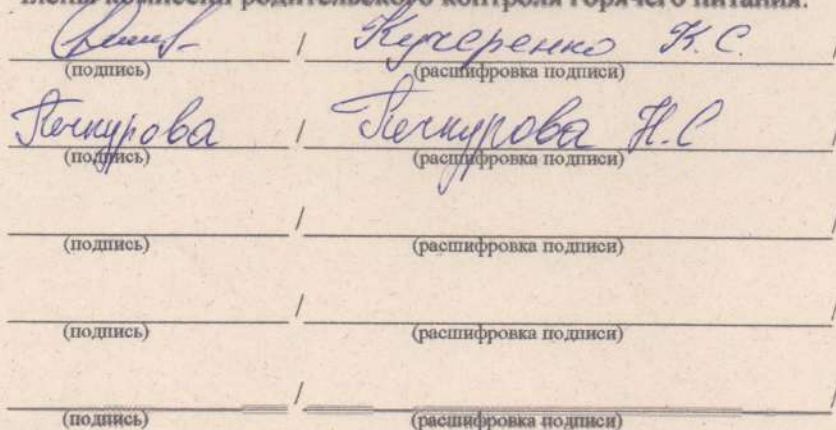 члены комиссии родительского контроля горячего питания:
/ Кучеренко К. С. /
(подпись) (расшифровка подписи)
Печкурова / Печкурова Н. С /
(подпись) (расшифровка подписи)
/ /
(подпись) (расшифровка подписи)
/ /
(подпись) (расшифровка подписи)
/ /
(подпись) (расшифровка подписи)